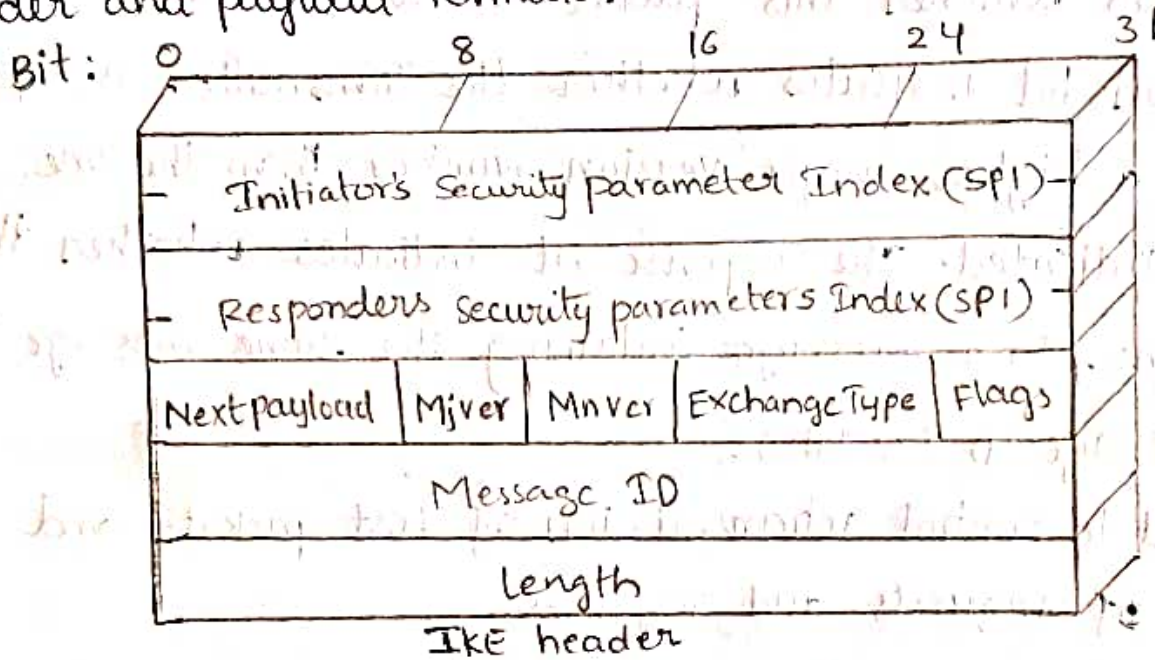 der and payload
0 8 16 24 31
Bit:
Initiator's Security parameter Index (SPI)
Responders security parameters Index (SPI)
Next payload Mjver Mnver Exchange Type Flags
Message ID
length
IKE header